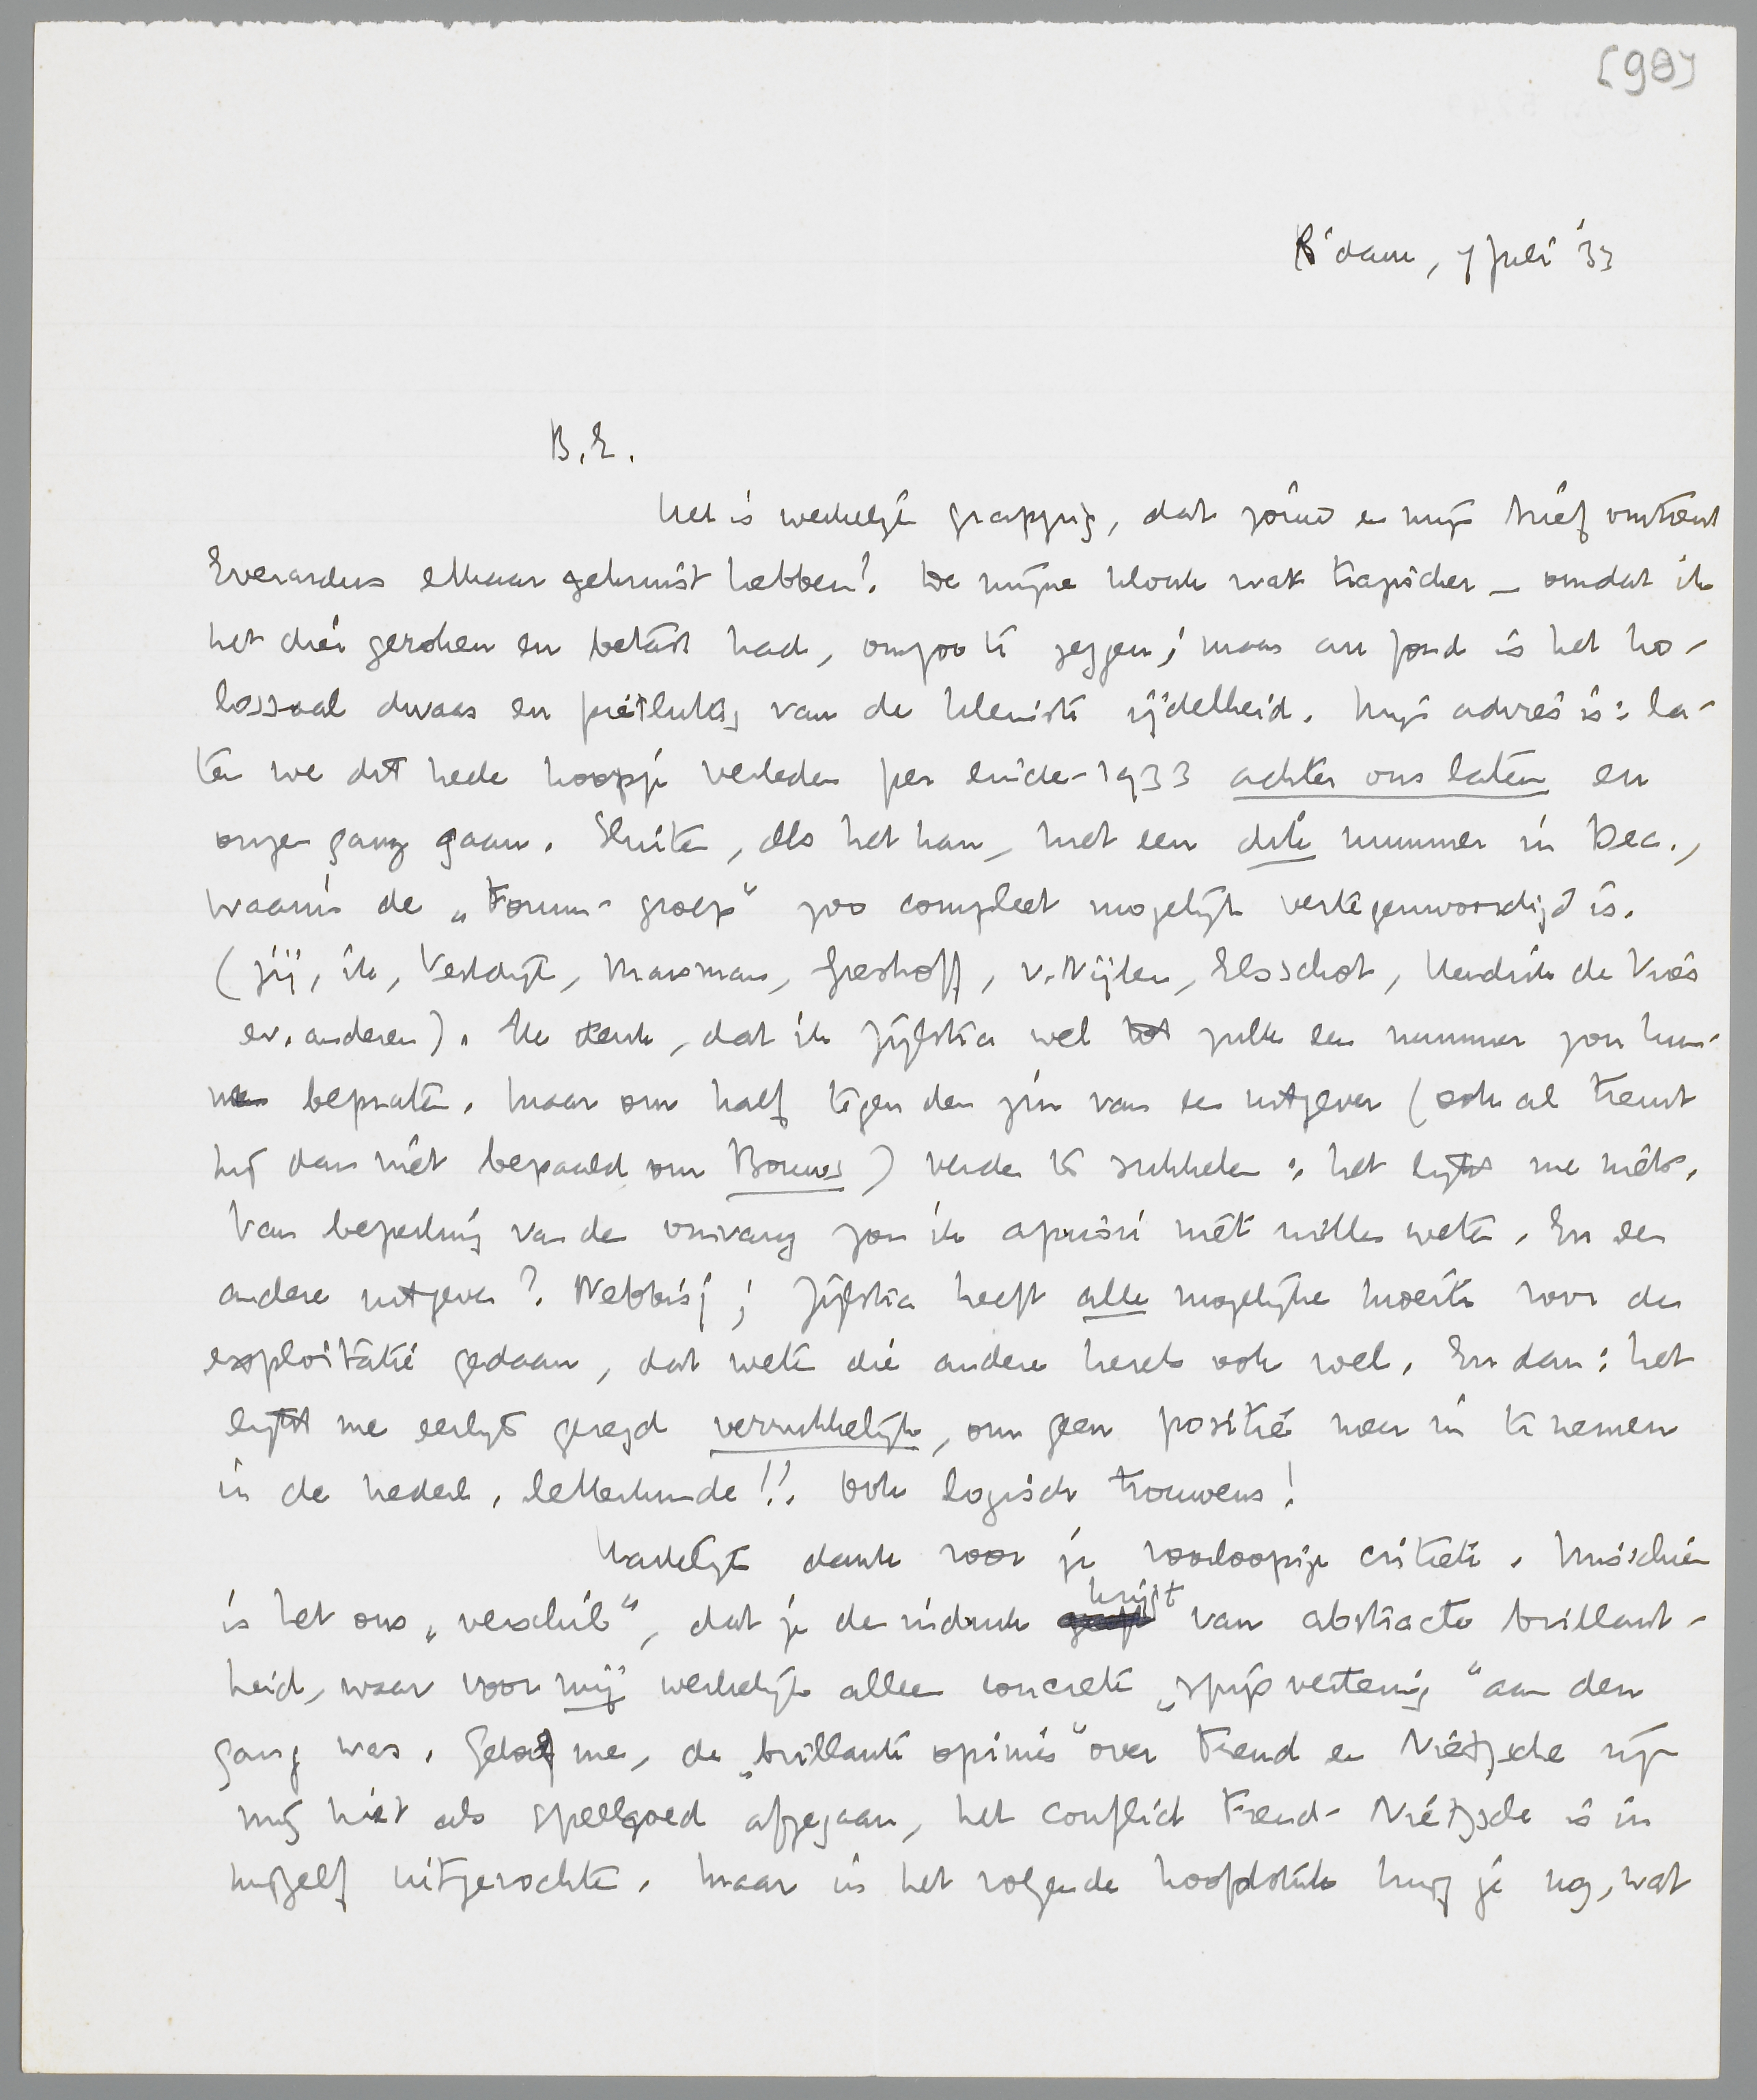 [98]
R'dam, 7 Juli '33
B.E.
Het is werkelijk grappig, dat jouw en mijn brief omtrent
Everardus elkaar gekruist hebben! De mijne klonk wat tragischer – omdat ik
het dier geroken en betast had, om zoo te zeggen; maar au fond is het ko-
lossaal dwaas en pietluttig van de kleinste ijdelheid. Mijn advies is: la-
ten we dit heele hoopje verleden per einde-1933 achter ons laten en
onzen gang gaan. Sluiten, als het kan, met een dik nummer in Dec.,
waarin de „Forum-groep" zoo compleet mogelijk vertegenwoordigd is.
(jij, ik, Vestdijk, Marsman, Greshoff, v. Nijlen, Elsschot, Hendrik de Vries
en anderen). Ik denk, dat ik Zijlstra wel tot zulk een nummer zou kun-
nen bepraten. Maar om half tegen den zin van een uitgever (ook al treurt
hij dan niet bepaald om Bouws) verder te sukkelen: het lijkt me niets.
Van beperking van den omvang zou ik apriori niet willen weten. En een
andere uitgever? Nebbisj; Zijlstra heeft alle mogelijke moeite voor de
exploitatie gedaan, dat weten die andere heeren ook wel. En dan: het
lijkt me eerlijk gezegd verrukkelijk, om geen positie meer in te nemen
in de Nederl. letterkunde!! Ook logisch trouwens!
Hartelijk dank voor je voorloopige critiek. Misschien
is het ons „verschil", dat je den indruk krijgt van abstracte brillant-
heid, waar voor mij werkelijk alleen concrete „spijsvertering" aan den
gang was. Geloof me, de „brillante opinies" over Freud en Nietzsche zijn
mij niet als speelgoed afgegaan, het conflict Freud-Nietzsche is in
mijzelf uitgevochten. Maar in het volgende hoofdstuk krijg je nog, wat